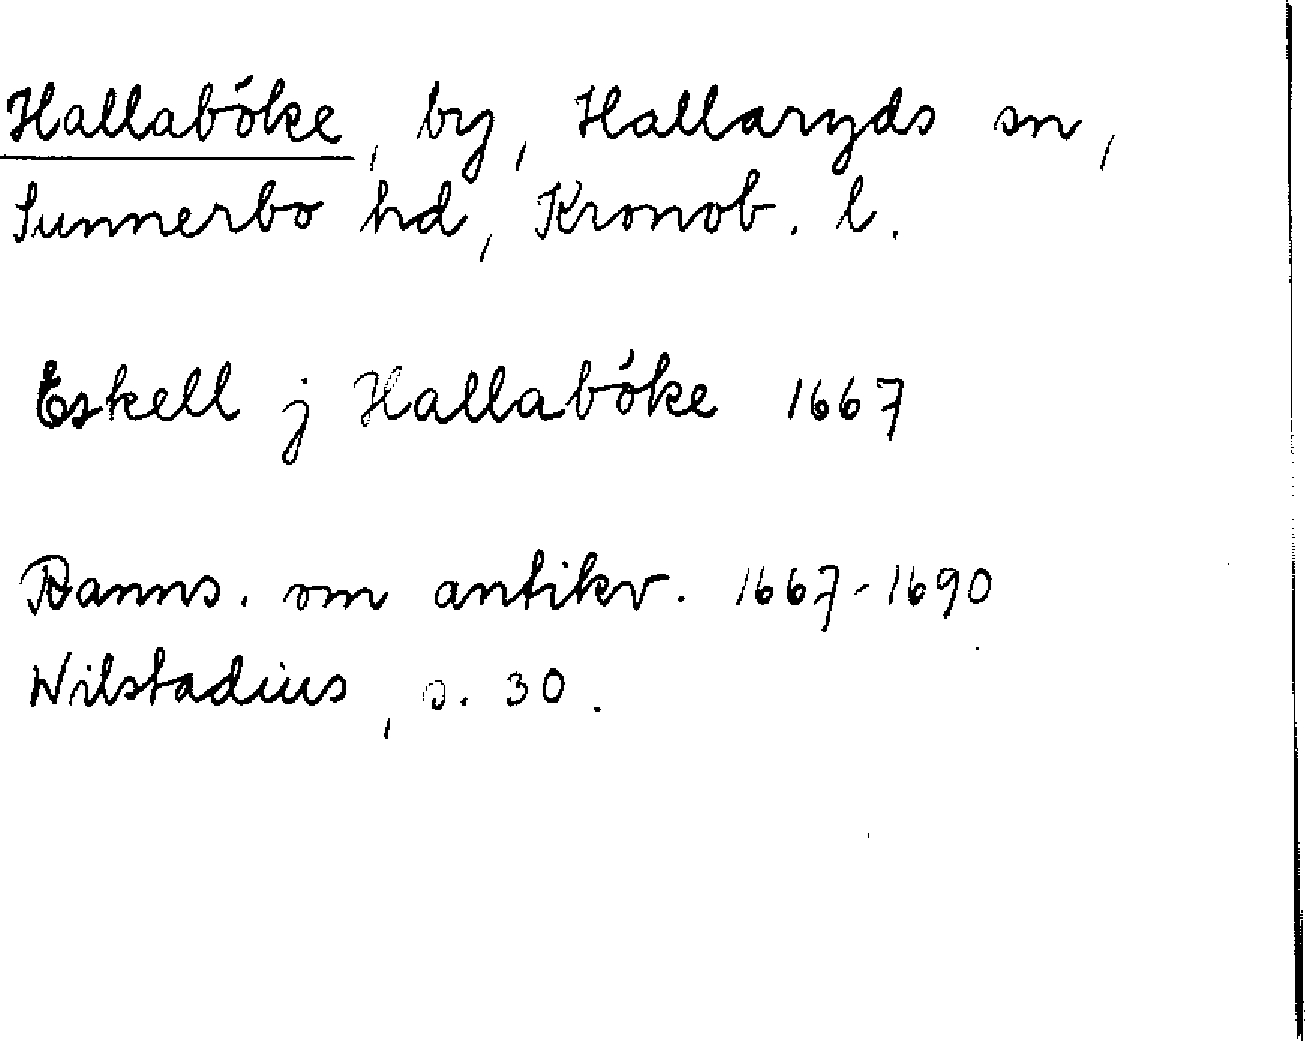 Hallaböke, by, Hallaryds sn,
Sunnerbo hd, Kronob. l.
Eskell j Hallaböke 1667
Ranns. om antikv. 1667-1690
Wilstadius, s. 30.